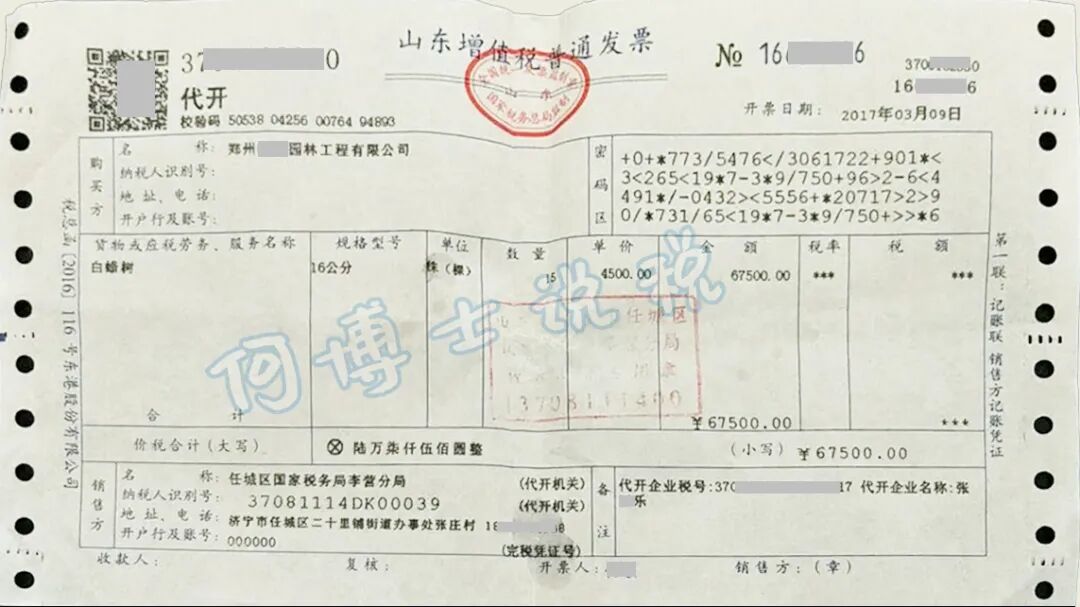 山东增值税普通发票
代开
校验码 50538 04256 00764 94893
№ 16 6
370
16 6
开票日期: 2017年03月09日
购买方
名 称: 郑州 园林工程有限公司
纳税人识别号:
地 址、电 话:
开户行及账号:
密码区
+0+*773/5476</3061722+901*<
3<265<19*7-3*9/750+96>2-6<4
491*/-0432><5556+*20717>2>9
0/*731/65<19*7-3*9/750+>>*6
货物或应税劳务、服务名称 规格型号 单位 数量 单价 金额 税率 税额
白蜡树 16公分 株(棵) 15 4500.00 67500.00 *** ***
何博士说税
任城区
局
合 计 ¥67500.00 ***
价税合计(大写) ⊗ 陆万柒仟伍佰圆整 (小写) ¥67500.00
销售方
名 称: 任城区国家税务局李营分局 (代开机关)
纳税人识别号: 37081114DK00039 (代开机关)
地 址、电 话: 济宁市任城区二十里铺街道办事处张庄村 18
开户行及账号: 000000 (完税凭证号)
备注
代开企业税号:370 17 代开企业名称:张
乐
收款人: 复核: 开票人: 销售方:(章)
税总函[2016]116号东港股份有限公司
第一联:记账联 销售方记账凭证